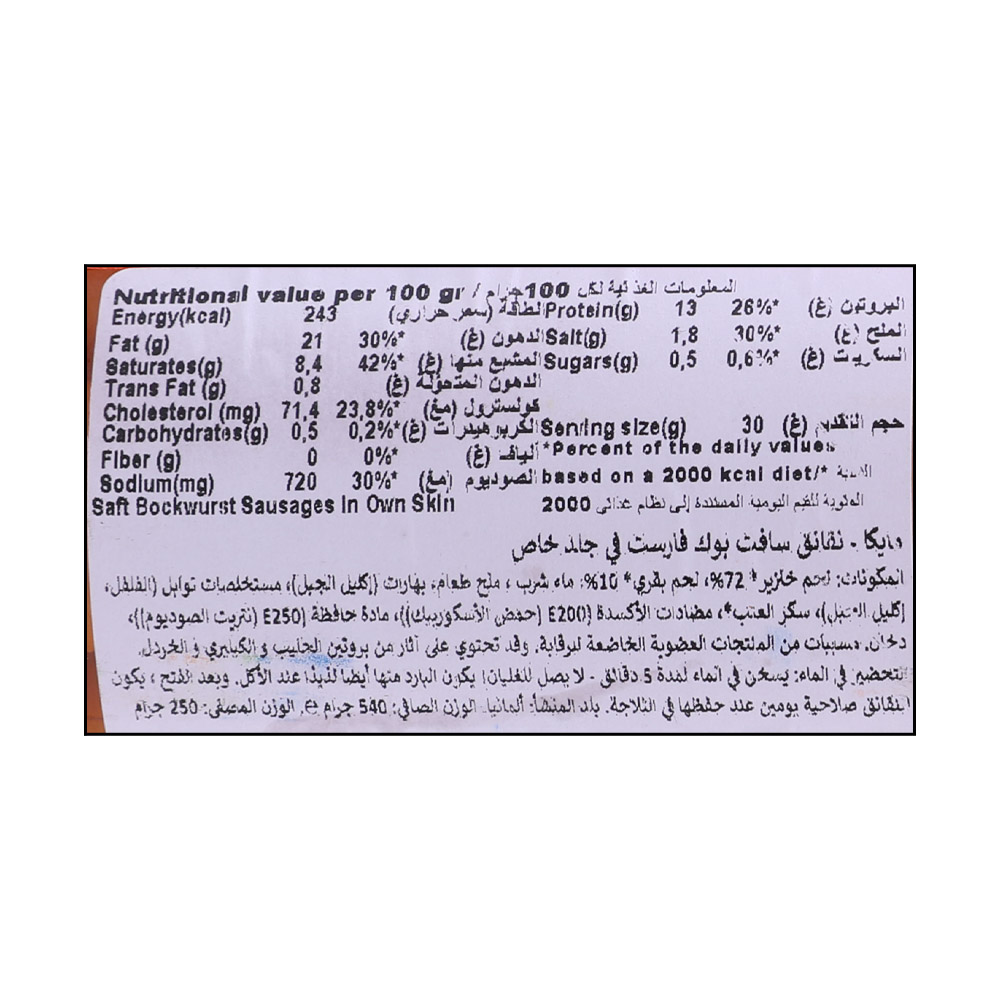 Nutritional value per 100 gr / المعلومات الغذائية لكل 100 جرام
Energy(kcal) 243 الطاقة (سعر حراري)
Fat (g) 21 30%* الدهون (غ)
Saturates(g) 8,4 42%* المشبع منها (غ)
Trans Fat (g) 0,8 الدهون المتحولة (غ)
Cholesterol (mg) 71,4 23,8%* كولسترول (مغ)
Carbohydrates(g) 0,5 0,2%* الكربوهيدرات (غ)
Fiber (g) 0 0%* ألياف (غ)
Sodium(mg) 720 30%* الصوديوم (مغ)
Saft Bockwurst Sausages in Own Skin
Protein(g) 13 26%* البروتين (غ)
Salt(g) 1,8 30%* الملح (غ)
Sugars(g) 0,5 0,6%* السكريات (غ)
Serving size(g) 30 حجم التقديم (غ)
*Percent of the daily values
based on a 2000 kcal diet/* النسبة
المئوية للقيم اليومية المستندة إلى نظام غذائي 2000
مايكا - نقانق سافت بوك فارست في جلد خاص
المكونات: لحم خنزير* 72%، لحم بقري* 10%: ماء شرب ، ملح طعام، بهارات (إكليل الجبل)، مستخلصات توابل (الفلفل،
إكليل الجبل)، سكر العنب*، مضادات الأكسدة E200 (حمض الأسكوربيك)، مادة حافظة E250 (نتريت الصوديوم)،
دخان. مسببات من المنتجات العضوية الخاضعة للرقابة. وقد تحتوي على آثار من بروتين الحليب و الكبليري و الخردل.
التحضير في الماء: يسخن في الماء لمدة 5 دقائق - لا يصل للغليان! يكون البارد منها أيضا لذيذا عند الأكل. وبعد الفتح ، يكون
للنقانق صلاحية يومين عند حفظها في الثلاجة. بلد المنشأ: ألمانيا. الوزن الصافي: 540 جرام e. الوزن المصفى: 250 جرام